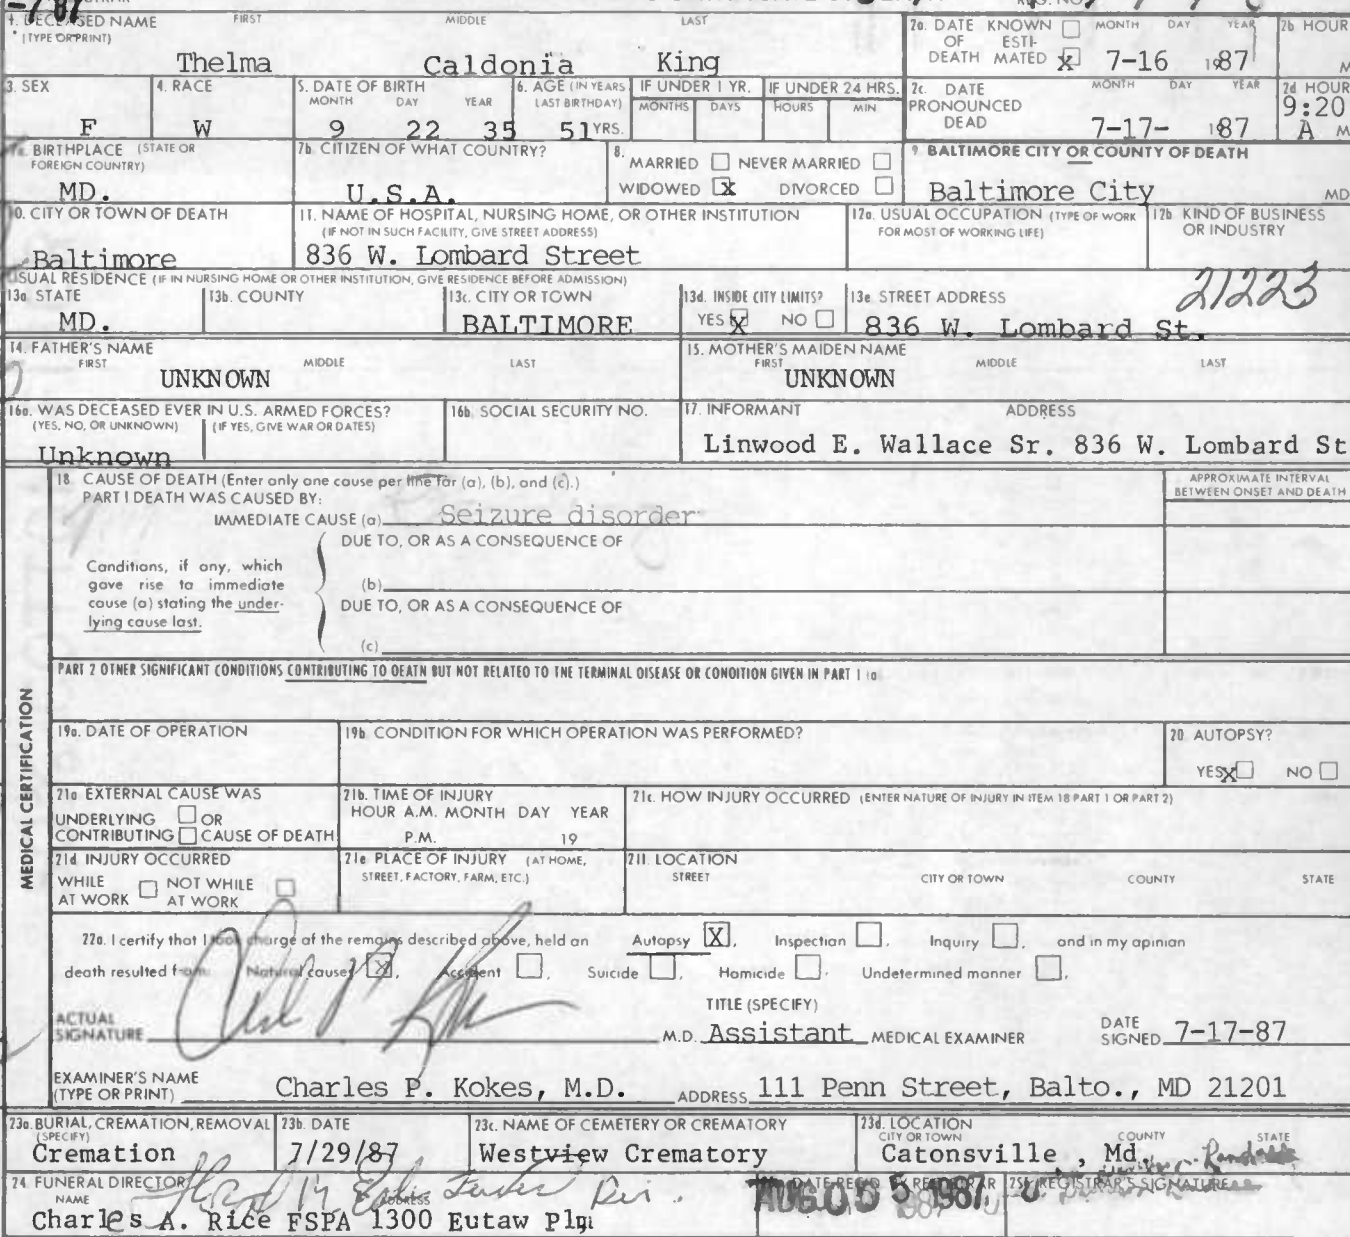 1. DECEASED NAME FIRST MIDDLE LAST
(TYPE OR PRINT)
Thelma Caldonia King
2a. DATE OF DEATH KNOWN ☐ ESTIMATED ☒ MONTH DAY YEAR
7-16 1987
2b HOUR
M
3. SEX
F
4. RACE
W
5. DATE OF BIRTH
MONTH DAY YEAR
9 22 35
6. AGE (IN YEARS LAST BIRTHDAY)
51 YRS.
IF UNDER 1 YR.
MONTHS DAYS
IF UNDER 24 HRS.
HOURS MIN
2c. DATE PRONOUNCED DEAD MONTH DAY YEAR
7-17- 1987
2d HOUR
9:20
A M
7a BIRTHPLACE (STATE OR FOREIGN COUNTRY)
MD.
7b. CITIZEN OF WHAT COUNTRY?
U.S.A.
8. MARRIED ☐ NEVER MARRIED ☐
WIDOWED ☒ DIVORCED ☐
9. BALTIMORE CITY OR COUNTY OF DEATH
Baltimore City MD
10. CITY OR TOWN OF DEATH
Baltimore
11. NAME OF HOSPITAL, NURSING HOME, OR OTHER INSTITUTION
(IF NOT IN SUCH FACILITY, GIVE STREET ADDRESS)
836 W. Lombard Street
12a. USUAL OCCUPATION (TYPE OF WORK FOR MOST OF WORKING LIFE)
12b. KIND OF BUSINESS OR INDUSTRY
USUAL RESIDENCE (IF IN NURSING HOME OR OTHER INSTITUTION, GIVE RESIDENCE BEFORE ADMISSION)
13a STATE
MD.
13b. COUNTY
13c. CITY OR TOWN
BALTIMORE
13d. INSIDE CITY LIMITS?
YES ☒ NO ☐
13e STREET ADDRESS
21223
836 W. Lombard St.
14. FATHER'S NAME
FIRST MIDDLE LAST
UNKNOWN
15. MOTHER'S MAIDEN NAME
FIRST MIDDLE LAST
UNKNOWN
16a. WAS DECEASED EVER IN U.S. ARMED FORCES?
(YES, NO, OR UNKNOWN) (IF YES, GIVE WAR OR DATES)
Unknown
16b. SOCIAL SECURITY NO.
17. INFORMANT ADDRESS
Linwood E. Wallace Sr. 836 W. Lombard St
MEDICAL CERTIFICATION
18. CAUSE OF DEATH (Enter only one cause per line for (a), (b), and (c).)
PART I DEATH WAS CAUSED BY:
APPROXIMATE INTERVAL
BETWEEN ONSET AND DEATH
IMMEDIATE CAUSE (a) Seizure disorder
DUE TO, OR AS A CONSEQUENCE OF
Conditions, if any, which
gave rise to immediate
cause (a) stating the under-
lying cause last.
(b)
DUE TO, OR AS A CONSEQUENCE OF
(c)
PART 2 OTHER SIGNIFICANT CONDITIONS CONTRIBUTING TO DEATH BUT NOT RELATED TO THE TERMINAL DISEASE OR CONDITION GIVEN IN PART 1 (a
19a. DATE OF OPERATION
19b CONDITION FOR WHICH OPERATION WAS PERFORMED?
20. AUTOPSY?
YES ☒ NO ☐
21a EXTERNAL CAUSE WAS
UNDERLYING ☐ OR
CONTRIBUTING ☐ CAUSE OF DEATH
21b. TIME OF INJURY
HOUR A.M. MONTH DAY YEAR
P.M. 19
21c. HOW INJURY OCCURRED (ENTER NATURE OF INJURY IN ITEM 18 PART 1 OR PART 2)
21d INJURY OCCURRED
WHILE AT WORK ☐ NOT WHILE AT WORK ☐
21e PLACE OF INJURY (AT HOME,
STREET, FACTORY, FARM, ETC.)
21f. LOCATION
STREET CITY OR TOWN COUNTY STATE
22a. I certify that I took charge of the remains described above, held an Autopsy ☒, Inspection ☐, Inquiry ☐, and in my opinion
death resulted from: Natural causes ☒, Accident ☐, Suicide ☐, Homicide ☐, Undetermined manner ☐,
TITLE (SPECIFY)
ACTUAL SIGNATURE M.D. Assistant MEDICAL EXAMINER DATE SIGNED 7-17-87
EXAMINER'S NAME
(TYPE OR PRINT) Charles P. Kokes, M.D. ADDRESS 111 Penn Street, Balto., MD 21201
23a. BURIAL, CREMATION, REMOVAL
(SPECIFY)
Cremation
23b. DATE
7/29/87
23c. NAME OF CEMETERY OR CREMATORY
Westview Crematory
23d. LOCATION
CITY OR TOWN COUNTY STATE
Catonsville , Md.
24. FUNERAL DIRECTOR
NAME ADDRESS
Charles A. Rice FSPA 1300 Eutaw Pl
AUG 05 1987
REGISTRAR'S SIGNATURE